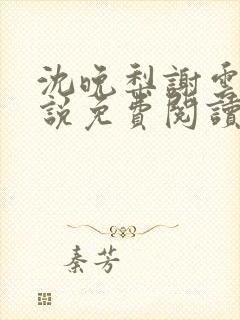 沈晚梨謝雲
說免費閱讀
秦芳